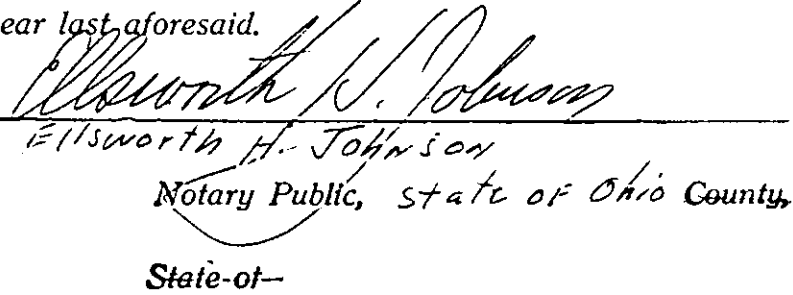 ear last aforesaid.
Ellsworth H. Johnson
Ellsworth H. Johnson
Notary Public, State of Ohio County,
State of